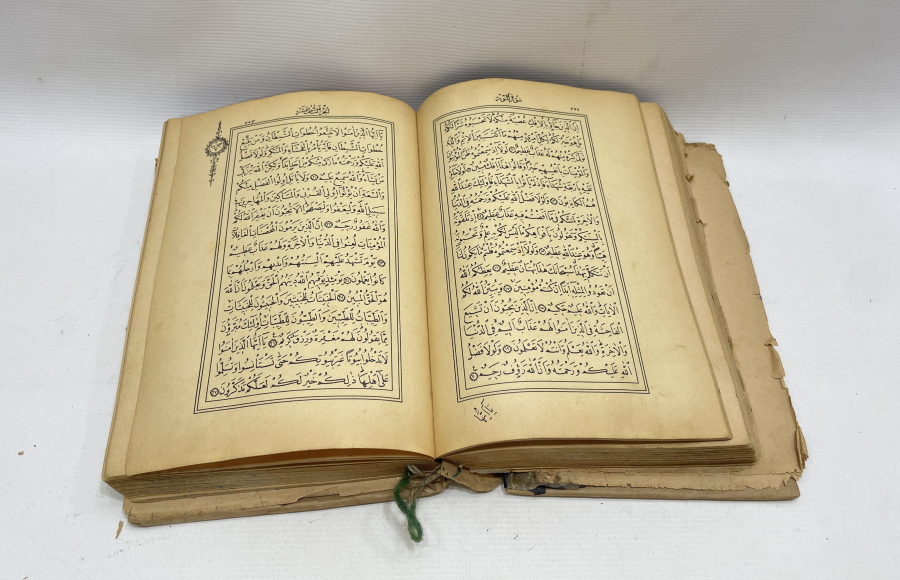 سورة النور
اِنَّ الَّذٖينَ جَاؤُ بِالْاِفْكِ عُصْبَةٌ مِنْكُمْ لَا تَحْسَبُوهُ شَرًّا لَكُمْ
بَلْ هُوَ خَيْرٌ لَكُمْ لِكُلِّ امْرِئٍ مِنْهُمْ مَا اكْتَسَبَ مِنَ الْاِثْمِ وَالَّذٖى
تَوَلّٰى كِبْرَهُ مِنْهُمْ لَهُ عَذَابٌ عَظٖيمٌ ۝١١ لَوْلَا اِذْ سَمِعْتُمُوهُ ظَنَّ الْمُؤْمِنُونَ
وَالْمُؤْمِنَاتُ بِاَنْفُسِهِمْ خَيْرًا وَقَالُوا هٰذَا اِفْكٌ مُبٖينٌ ۝١٢ لَوْلَا جَاؤُ
عَلَيْهِ بِاَرْبَعَةِ شُهَدَاءَ فَاِذْ لَمْ يَاْتُوا بِالشُّهَدَاءِ فَاُولٰئِكَ عِنْدَ اللّٰهِ
هُمُ الْكَاذِبُونَ ۝١٣ وَلَوْلَا فَضْلُ اللّٰهِ عَلَيْكُمْ وَرَحْمَتُهُ فِى الدُّنْيَا
وَالْاٰخِرَةِ لَمَسَّكُمْ فٖى مَا اَفَضْتُمْ فٖيهِ عَذَابٌ عَظٖيمٌ ۝١٤ اِذْ تَلَقَّوْنَهُ
بِاَلْسِنَتِكُمْ وَتَقُولُونَ بِاَفْوَاهِكُمْ مَا لَيْسَ لَكُمْ بِهٖ عِلْمٌ وَتَحْسَبُونَهُ
هَيِّنًا وَهُوَ عِنْدَ اللّٰهِ عَظٖيمٌ ۝١٥ وَلَوْلَا اِذْ سَمِعْتُمُوهُ قُلْتُمْ مَا يَكُونُ لَنَا
اَنْ نَتَكَلَّمَ بِهٰذَا سُبْحَانَكَ هٰذَا بُهْتَانٌ عَظٖيمٌ ۝١٦ يَعِظُكُمُ اللّٰهُ
اَنْ تَعُودُوا لِمِثْلِهٖ اَبَدًا اِنْ كُنْتُمْ مُؤْمِنٖينَ ۝١٧ وَيُبَيِّنُ اللّٰهُ لَكُمُ
الْاٰيَاتِ وَاللّٰهُ عَلٖيمٌ حَكٖيمٌ ۝١٨ اِنَّ الَّذٖينَ يُحِبُّونَ اَنْ تَشٖيعَ
الْفَاحِشَةُ فِى الَّذٖينَ اٰمَنُوا لَهُمْ عَذَابٌ اَلٖيمٌ فِى الدُّنْيَا
وَالْاٰخِرَةِ وَاللّٰهُ يَعْلَمُ وَاَنْتُمْ لَا تَعْلَمُونَ ۝١٩ وَلَوْلَا فَضْلُ
اللّٰهِ عَلَيْكُمْ وَرَحْمَتُهُ وَاَنَّ اللّٰهَ رَؤُفٌ رَحٖيمٌ ۝٢٠
يَا اَيُّهَا الَّذٖينَ اٰمَنُوا لَا تَتَّبِعُوا خُطُوَاتِ الشَّيْطَانِ وَمَنْ يَتَّبِعْ
خُطُوَاتِ الشَّيْطَانِ فَاِنَّهُ يَاْمُرُ بِالْفَحْشَاءِ وَالْمُنْكَرِ وَلَوْلَا فَضْلُ
اللّٰهِ عَلَيْكُمْ وَرَحْمَتُهُ مَا زَكٰى مِنْكُمْ مِنْ اَحَدٍ اَبَدًا وَلٰكِنَّ اللّٰهَ يُزَكّٖى
مَنْ يَشَاءُ وَاللّٰهُ سَمٖيعٌ عَلٖيمٌ ۝٢١ وَلَا يَاْتَلِ اُولُوا الْفَضْلِ مِنْكُمْ
وَالسَّعَةِ اَنْ يُؤْتُوا اُولِى الْقُرْبٰى وَالْمَسَاكٖينَ وَالْمُهَاجِرٖينَ فٖى
سَبٖيلِ اللّٰهِ وَلْيَعْفُوا وَلْيَصْفَحُوا اَلَا تُحِبُّونَ اَنْ يَغْفِرَ اللّٰهُ لَكُمْ
وَاللّٰهُ غَفُورٌ رَحٖيمٌ ۝٢٢ اِنَّ الَّذٖينَ يَرْمُونَ الْمُحْصَنَاتِ الْغَافِلَاتِ
الْمُؤْمِنَاتِ لُعِنُوا فِى الدُّنْيَا وَالْاٰخِرَةِ وَلَهُمْ عَذَابٌ عَظٖيمٌ
۝٢٣ يَوْمَ تَشْهَدُ عَلَيْهِمْ اَلْسِنَتُهُمْ وَاَيْدٖيهِمْ وَاَرْجُلُهُمْ بِمَا
كَانُوا يَعْمَلُونَ ۝٢٤ يَوْمَئِذٍ يُوَفّٖيهِمُ اللّٰهُ دٖينَهُمُ الْحَقَّ وَيَعْلَمُونَ اَنَّ اللّٰهَ
هُوَ الْحَقُّ الْمُبٖينُ ۝٢٥ اَلْخَبٖيثَاتُ لِلْخَبٖيثٖينَ وَالْخَبٖيثُونَ لِلْخَبٖيثَاتِ
وَالطَّيِّبَاتُ لِلطَّيِّبٖينَ وَالطَّيِّبُونَ لِلطَّيِّبَاتِ اُولٰئِكَ مُبَرَّؤُنَ
مِمَّا يَقُولُونَ لَهُمْ مَغْفِرَةٌ وَرِزْقٌ كَرٖيمٌ ۝٢٦ يَا اَيُّهَا الَّذٖينَ اٰمَنُوا
لَا تَدْخُلُوا بُيُوتًا غَيْرَ بُيُوتِكُمْ حَتّٰى تَسْتَاْنِسُوا وَتُسَلِّمُوا
عَلٰى اَهْلِهَا ذٰلِكُمْ خَيْرٌ لَكُمْ لَعَلَّكُمْ تَذَكَّرُونَ ۝٢٧